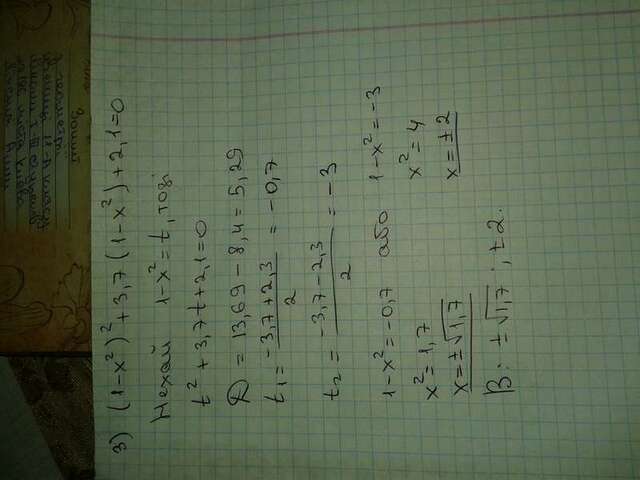 3) (1-x²)² + 3,7(1-x²) + 2,1 = 0
Нехай 1-x² = t, тоді
t² + 3,7t + 2,1 = 0
D = 13,69 - 8,4 = 5,29
t₁ = (-3,7 + 2,3)/2 = -0,7
t₂ = (-3,7 - 2,3)/2 = -3
1-x² = -0,7 або 1-x² = -3
x² = 1,7 x² = 4
x = ±√1,7 x = ±2
В: ±√1,7 ; ±2.
Зошит